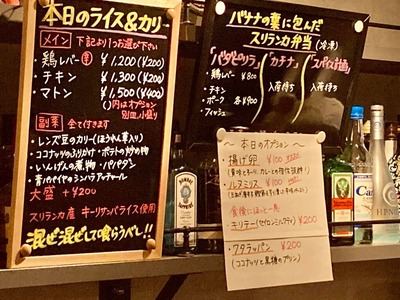 本日のライス&カリー
メイン 下記より1つお選び下さい
・鶏レバー ¥1,200(¥200)
・チキン ¥1,300(¥200)
・マトン ¥1,500(¥400)
()内はオプション
別皿小盛り
副菜 全て付きます
・レンズ豆のカリー(ほうれん草入り)
・ココナッツのふりかけ・ポテトの炒め物
・いんげんの煮物・パパダン
・青パパイヤのランパラアッチャール
大盛 +¥200
スリランカ産 キーリサンバライス使用
混ぜ混ぜして喰らうべし!!
バナナの葉に包んだ
スリランカ弁当(冷凍)
「バタピツラ」「カナナ」「スパイス計画」
鶏レバー ¥800
入荷待ち 入荷待ち
・チキン
・ポーク 各¥900
・フィッシュ
〜本日のオプション〜
・揚げ卵 ¥100
・ルヌミリス ¥100
食後にほっと一息
・キリテー(セイロンミルクティ) ¥200
・ワタラッパン ¥200
(ココナッツと黒糖のプリン)